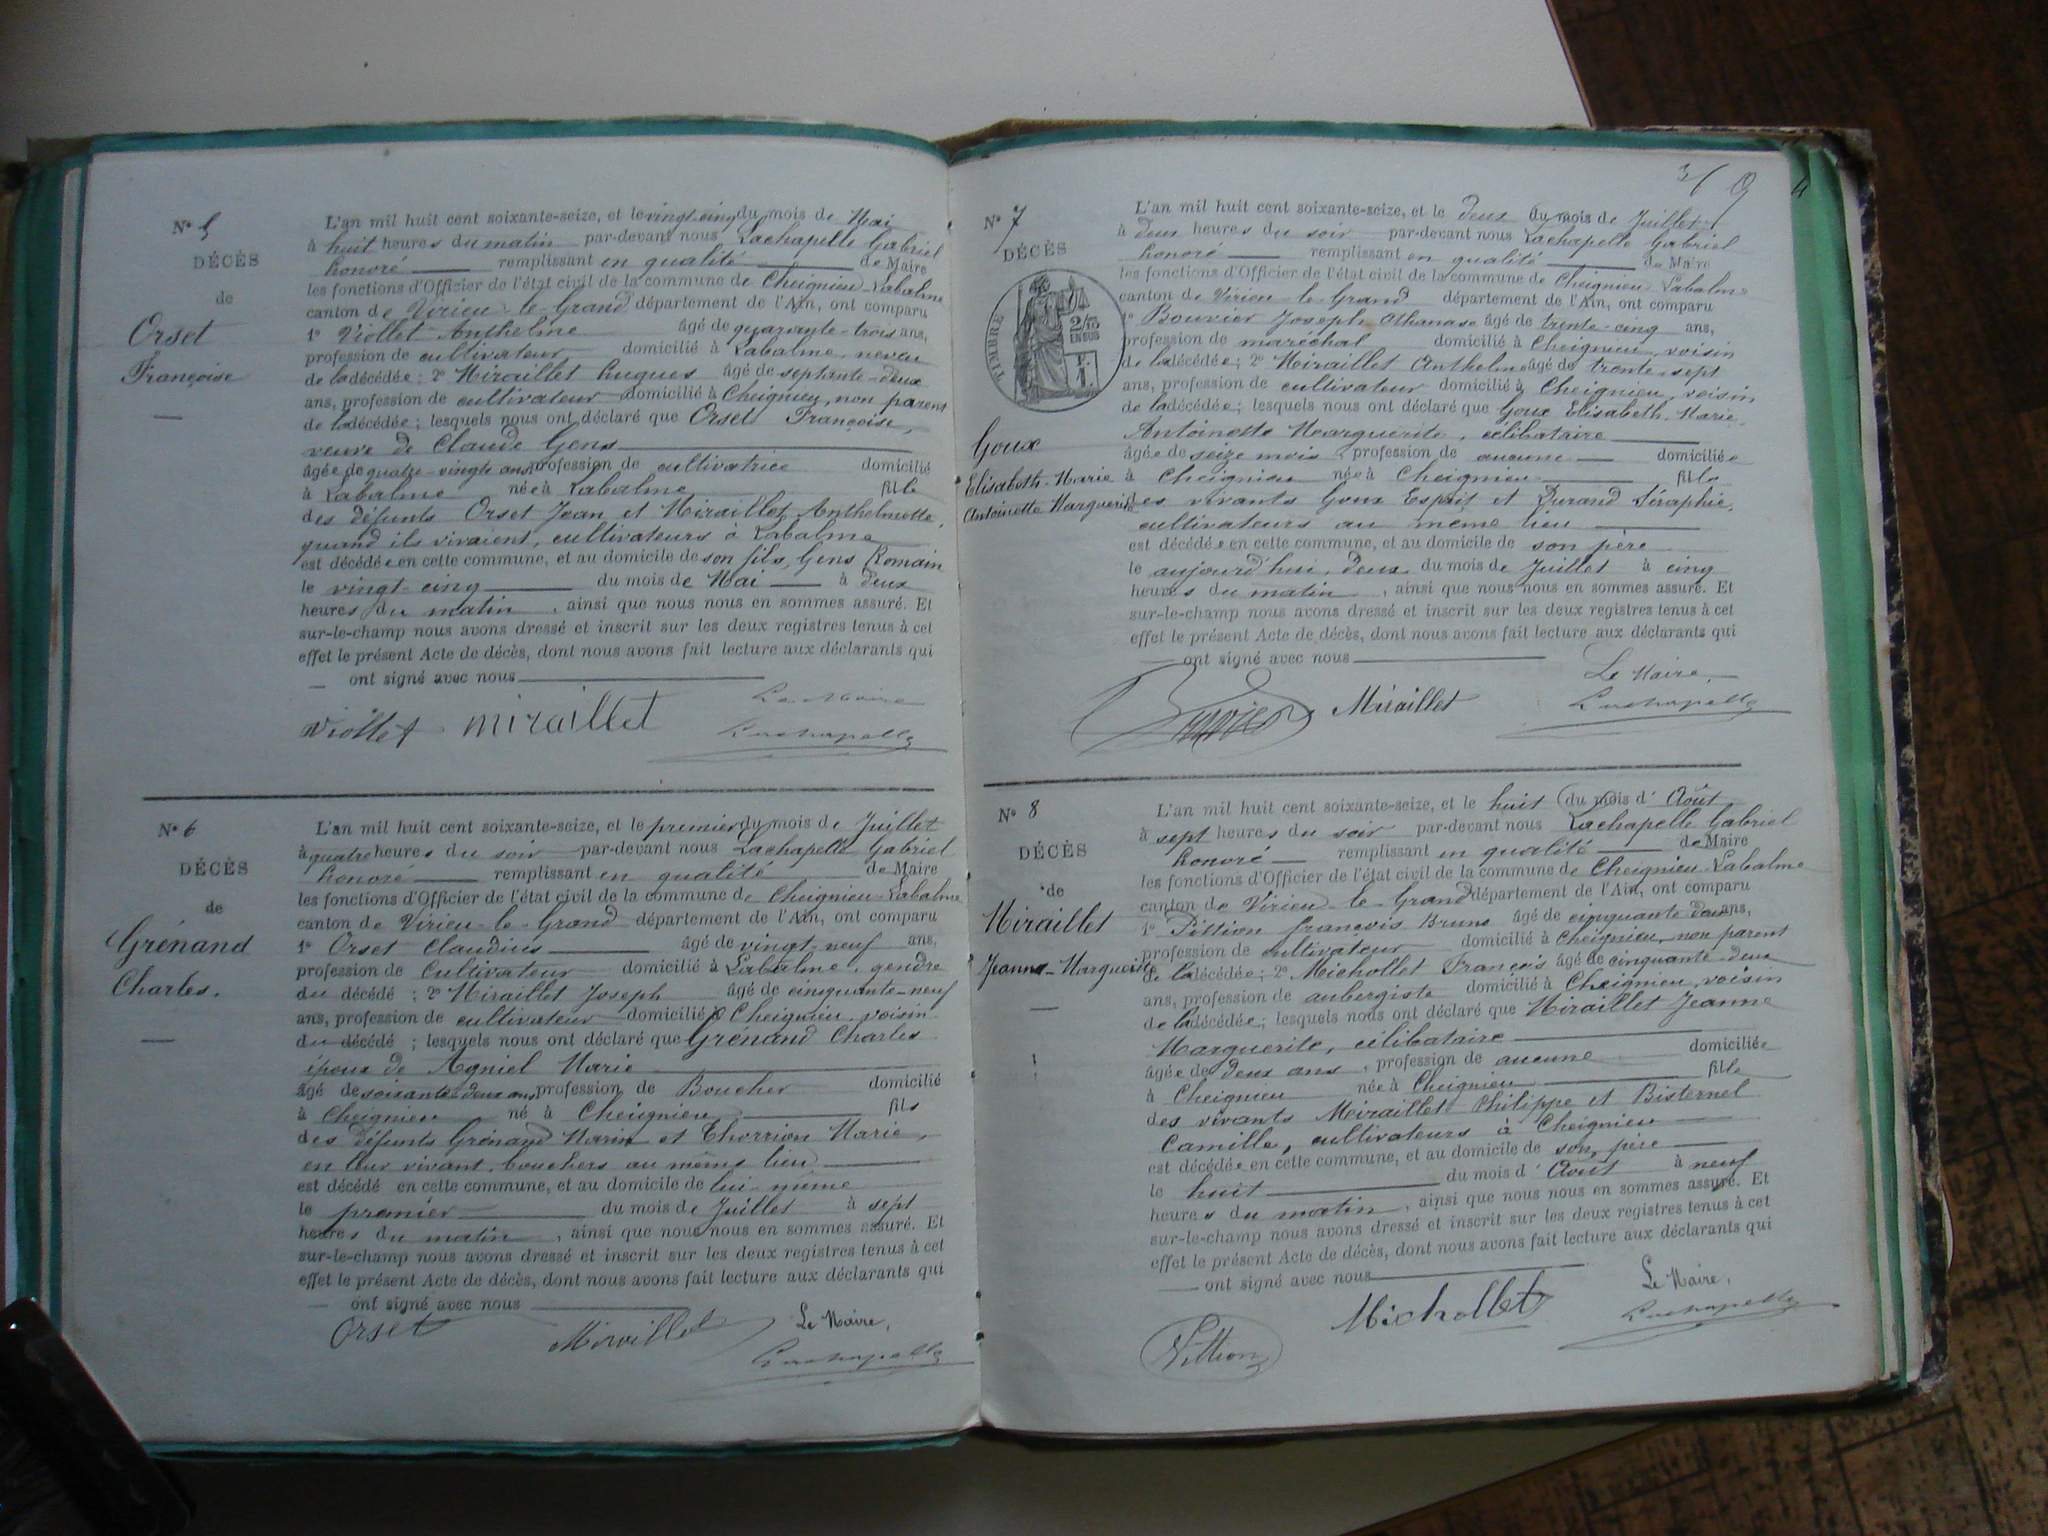 N° 5
DÉCÈS
de
Orset
Françoise
L'an mil huit cent soixante-seize, et le vingt-cinq du mois de Mai
à huit heures du matin par-devant nous Lachapelle Gabriel
honoré remplissant en qualité de Maire
les fonctions d'Officier de l'état civil de la commune de Cheignieu-Labalme
canton de Virieu-le-Grand département de l'Ain, ont comparu
1° Viollet Anthelme âgé de quarante-trois ans,
profession de cultivateur domicilié à Labalme, neveu
de la décédée; 2° Miraillet hugues âgé de septante-deux
ans, profession de cultivateur domicilié à Cheignieu, non parent
de la décédée; lesquels nous ont déclaré que Orset Françoise,
veuve de Claude Gens
âgée de quatre-vingts ans profession de cultivatrice domicilié
à Labalme née à Labalme fille
des défunts Orset Jean et Miraillet Anthelmette,
quand ils vivaient, cultivateurs à Labalme
est décédée en cette commune, et au domicile de son fils, Gens Romain
le vingt-cinq du mois de Mai à deux
heures du matin, ainsi que nous nous en sommes assuré. Et
sur-le-champ nous avons dressé et inscrit sur les deux registres tenus à cet
effet le présent Acte de décès, dont nous avons fait lecture aux déclarants qui
ont signé avec nous
Le Maire
Viollet miraillet Lachapelle
N° 6
DÉCÈS
de
Grénand
Charles.
L'an mil huit cent soixante-seize, et le premier du mois de Juillet
à quatre heures du soir par-devant nous Lachapelle Gabriel
honoré remplissant en qualité de Maire
les fonctions d'Officier de l'état civil de la commune de Cheignieu-Labalme
canton de Virieu-le-Grand département de l'Ain, ont comparu
1° Orset Claudius âgé de vingt-neuf ans,
profession de Cultivateur domicilié à Labalme, gendre
du décédé; 2° Miraillet Joseph âgé de cinquante-neuf
ans, profession de cultivateur domicilié à Cheignieu, voisin
du décédé; lesquels nous ont déclaré que Grénand Charles
époux de Agniel Marie
âgé de soixante-deux ans profession de Boucher domicilié
à Cheignieu né à Cheignieu fils
des défunts Grénand Marin et Thorrion Marie,
en leur vivant, bouchers au même lieu
est décédé en cette commune, et au domicile de lui-même
le premier du mois de Juillet à sept
heures du matin, ainsi que nous nous en sommes assuré. Et
sur-le-champ nous avons dressé et inscrit sur les deux registres tenus à cet
effet le présent Acte de décès, dont nous avons fait lecture aux déclarants qui
ont signé avec nous
Le Maire,
Orset Miraillet Lachapelle
3/ 9 4
N° 7
DÉCÈS
TIMBRE
2/10
EN SUS
Goux
Elisabeth-Marie
Antoinette Marguerite
L'an mil huit cent soixante-seize, et le deux du mois de Juillet
à deux heures du soir par-devant nous Lachapelle Gabriel
honoré remplissant en qualité de Maire
les fonctions d'Officier de l'état civil de la commune de Cheignieu-Labalme
canton de Virieu-le-Grand département de l'Ain, ont comparu
1° Bouvier Joseph Athanase âgé de trente-cinq ans,
profession de maréchal domicilié à Cheignieu, voisin
de la décédée; 2° Miraillet Anthelme âgé de trente-sept
ans, profession de cultivateur domicilié à Cheignieu, voisin
de la décédée; lesquels nous ont déclaré que Goux Elisabeth-Marie
Antoinette Marguerite, célibataire
âgée de seize mois profession de aucune domiciliée
à Cheignieu née à Cheignieu fille
des vivants Goux Esprit et Durand Séraphie,
cultivateurs au même lieu
est décédée en cette commune, et au domicile de son père
le aujourd'hui, deux du mois de Juillet à cinq
heures du matin, ainsi que nous nous en sommes assuré. Et
sur-le-champ nous avons dressé et inscrit sur les deux registres tenus à cet
effet le présent Acte de décès, dont nous avons fait lecture aux déclarants qui
ont signé avec nous
Le Maire,
Bouvier Miraillet Lachapelle
N° 8
DÉCÈS
de
Miraillet
Jeanne-Marguerite
L'an mil huit cent soixante-seize, et le huit du mois d'Août
à sept heures du soir par-devant nous Lachapelle Gabriel
honoré remplissant en qualité de Maire
les fonctions d'Officier de l'état civil de la commune de Cheignieu-Labalme
canton de Virieu-le-Grand département de l'Ain, ont comparu
1° Pittion françois Bruno âgé de cinquante-deux ans,
profession de cultivateur domicilié à Cheignieu, non parent
de la décédée; 2° Michollet François âgé de cinquante-deux
ans, profession de aubergiste domicilié à Cheignieu, voisin
de la décédée; lesquels nous ont déclaré que Miraillet Jeanne
Marguerite, célibataire
âgée de deux ans, profession de aucune domiciliée
à Cheignieu née à Cheignieu fille
des vivants Miraillet Philippe et Bisternel
Camille, cultivateurs à Cheignieu
est décédée en cette commune, et au domicile de son père
le huit du mois d'Août à neuf
heures du matin, ainsi que nous nous en sommes assuré. Et
sur-le-champ nous avons dressé et inscrit sur les deux registres tenus à cet
effet le présent Acte de décès, dont nous avons fait lecture aux déclarants qui
ont signé avec nous
Le Maire,
Pittion Michollet Lachapelle